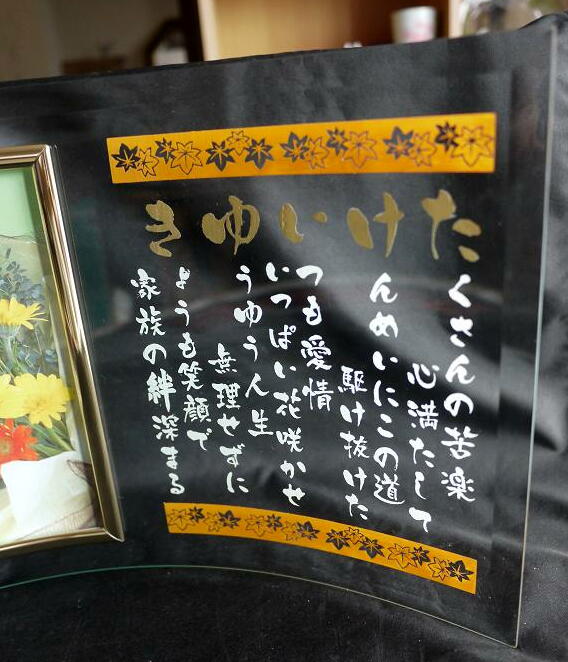 たけいゆき
くさんの苦楽
心満たして
んめいにこの道
駆け抜けた
つも愛情
いっぱい花咲かせ
うゆう人生
無理せずに
ょうも笑顔で
家族の絆深まる